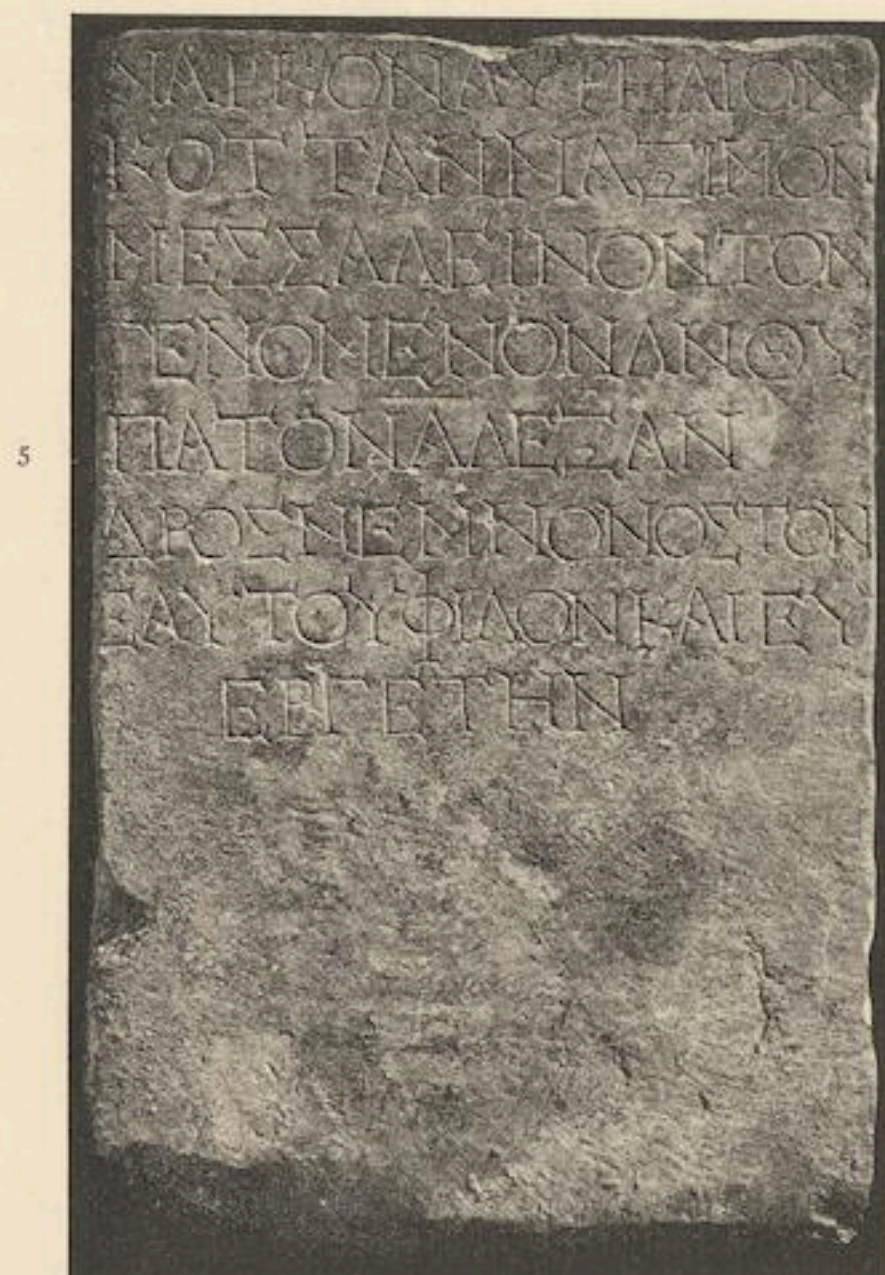 ΜΑΡΚΟΝΑΥΡΗΛΙΟΝ
ΚΟΤΤΑΝΜΑΞΙΜΟΝ
ΜΕΣΣΑΛΕΙΝΟΝΤΟΝ
ΓΕΝΟΜΕΝΟΝΑΝΘΥ
5 ΠΑΤΟΝΑΛΕΞΑΝ
ΔΡΟΣΜΕΜΝΟΝΟΣΤΟΝ
ΕΑΥΤΟΥΦΙΛΟΝΚΑΙΕΥ
ΕΡΓΕΤΗΝ